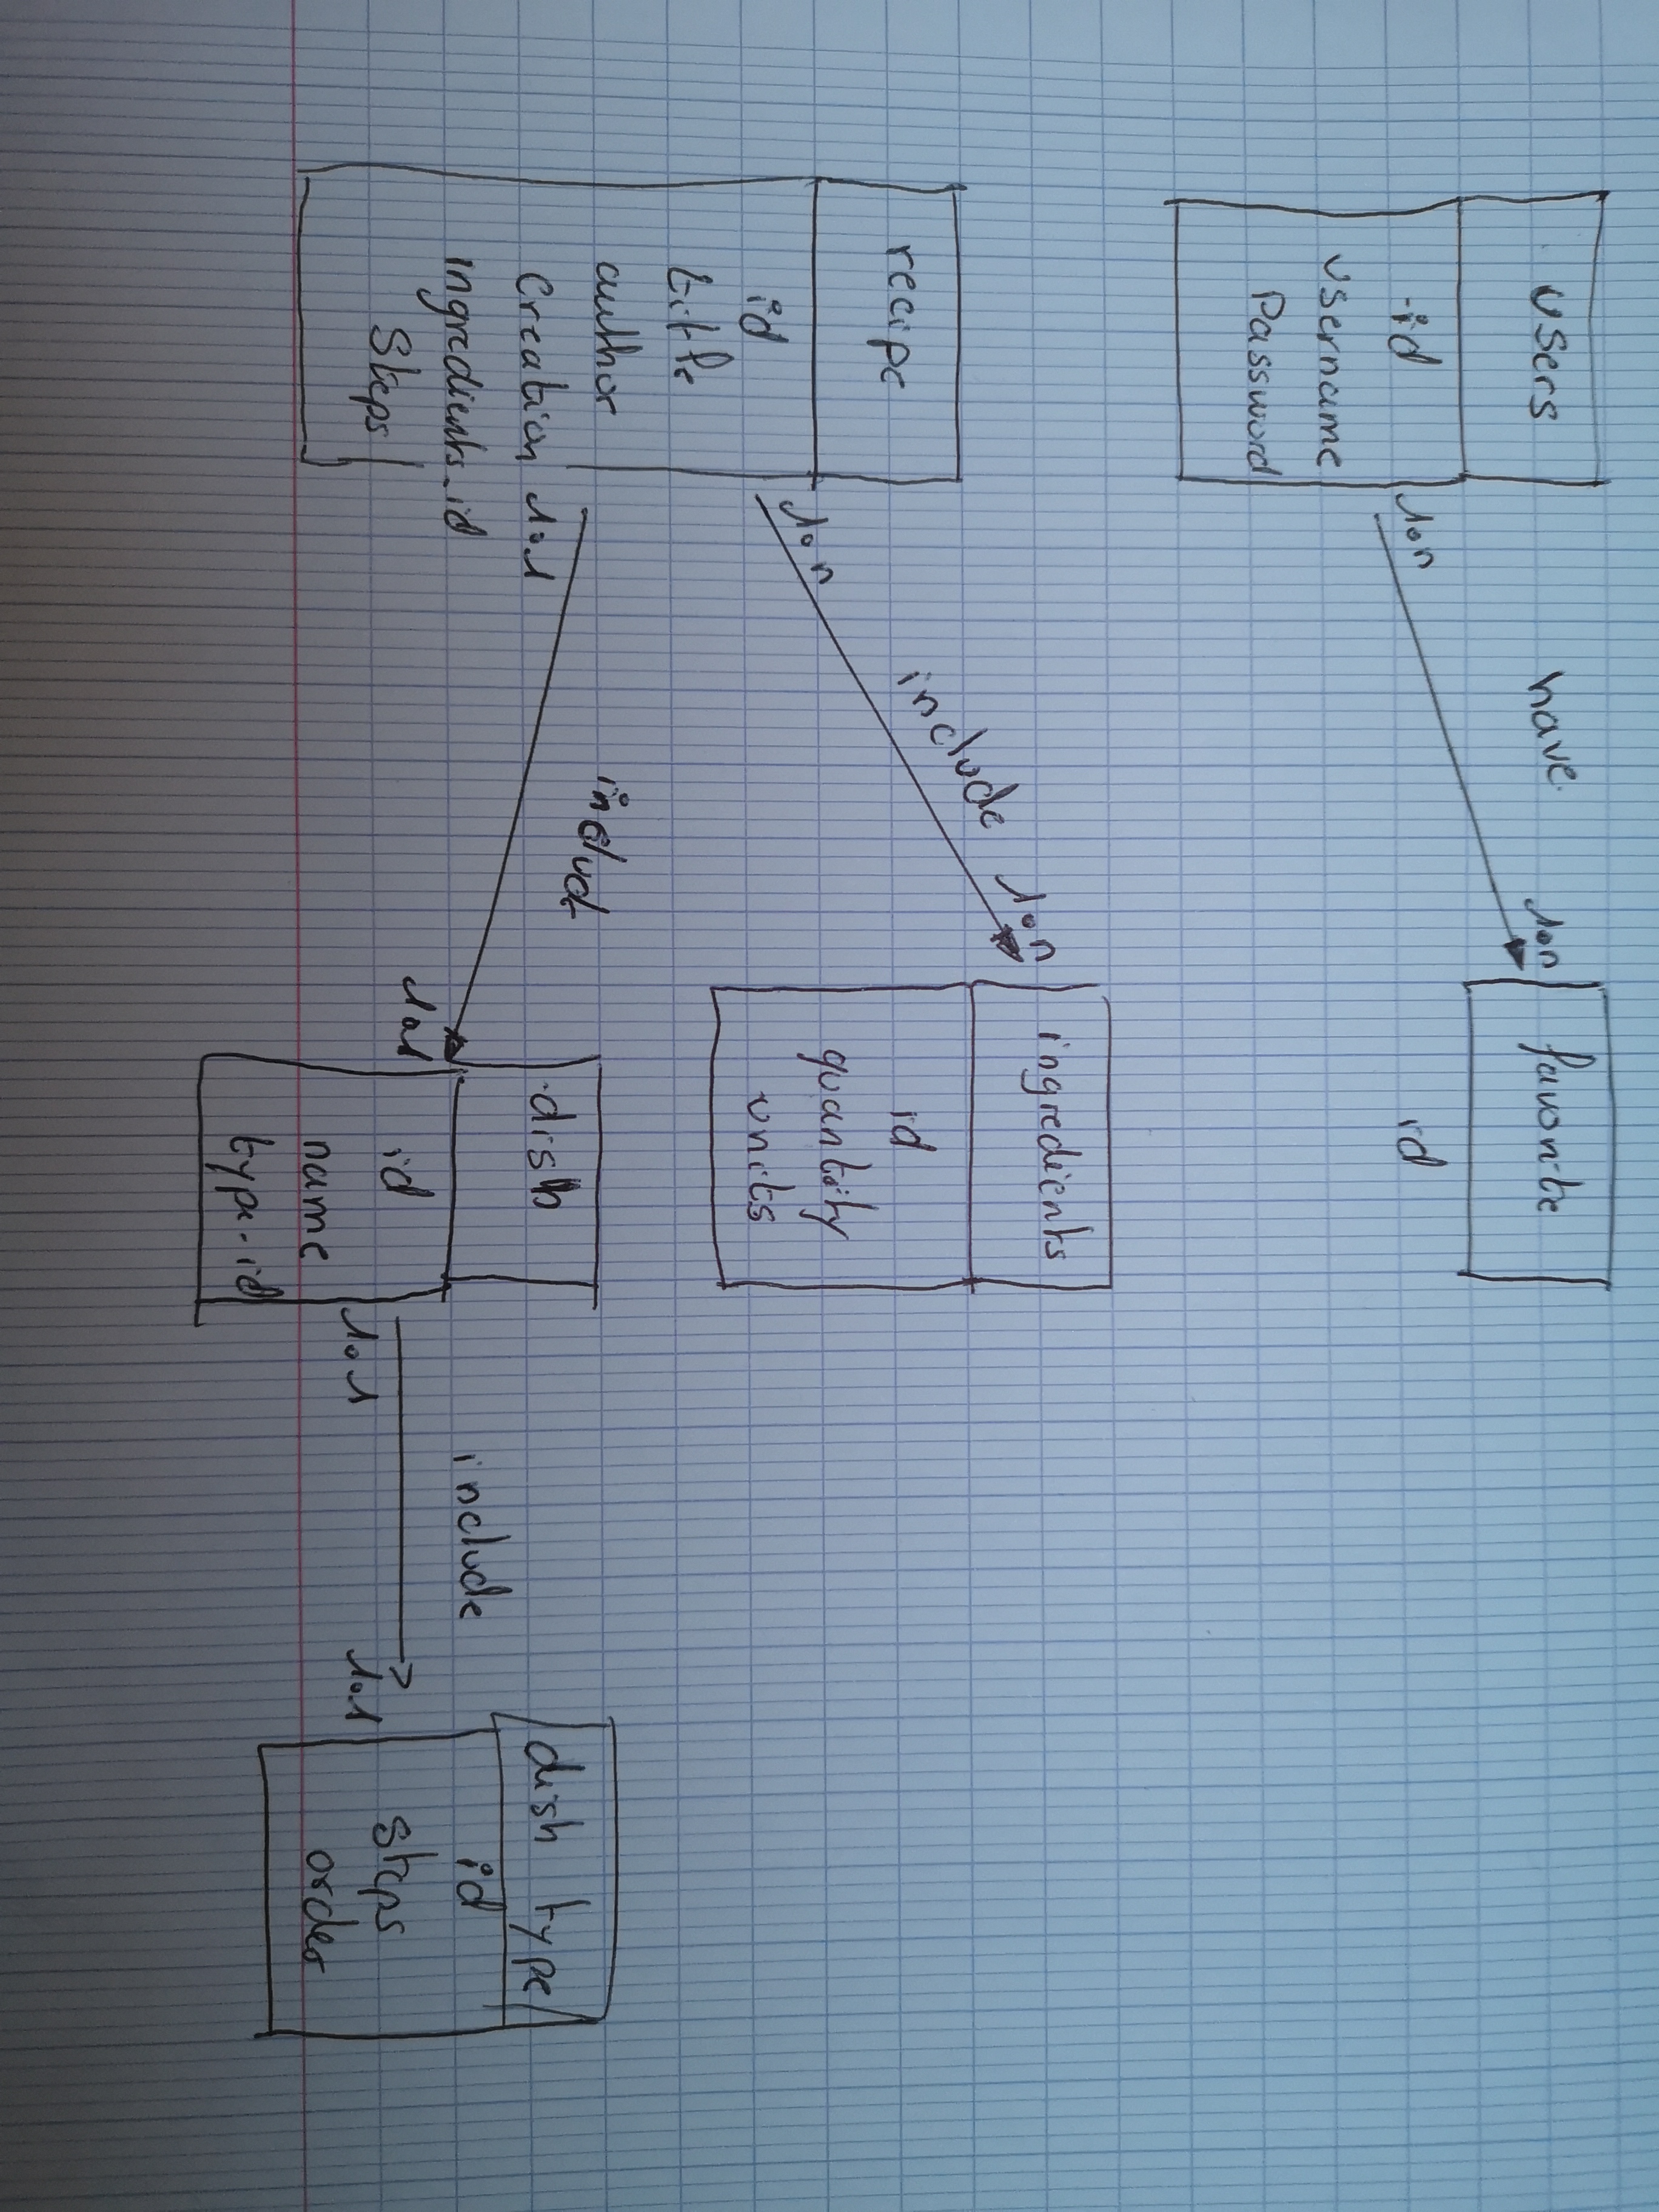 users
id
username
Password
1on
have
1on
favorite
id
recipe
id
title
author
Creation
ingredients_id
Steps
1on
include
1on
ingredients
id
quantity
units
1o1
includ
1o1
dish
id
name
type-id
1o1
include
1o1
dish type
id
steps
order